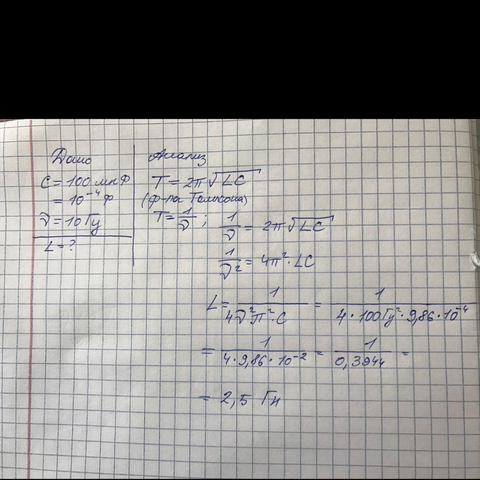 Дано
C = 100 мкФ
= 10⁻⁴ Ф
ν = 10 Гц
L = ?
Анализ
T = 2π√LC
(ф-ла Томсона)
T = 1/ν ; 1/ν = 2π√LC
1/ν² = 4π² · LC
L = 1/4ν²π²·C = 1/4·100Гц²·9,86·10⁻⁴
= 1/4·9,86·10⁻² = 1/0,3944 =
= 2,5 Гн